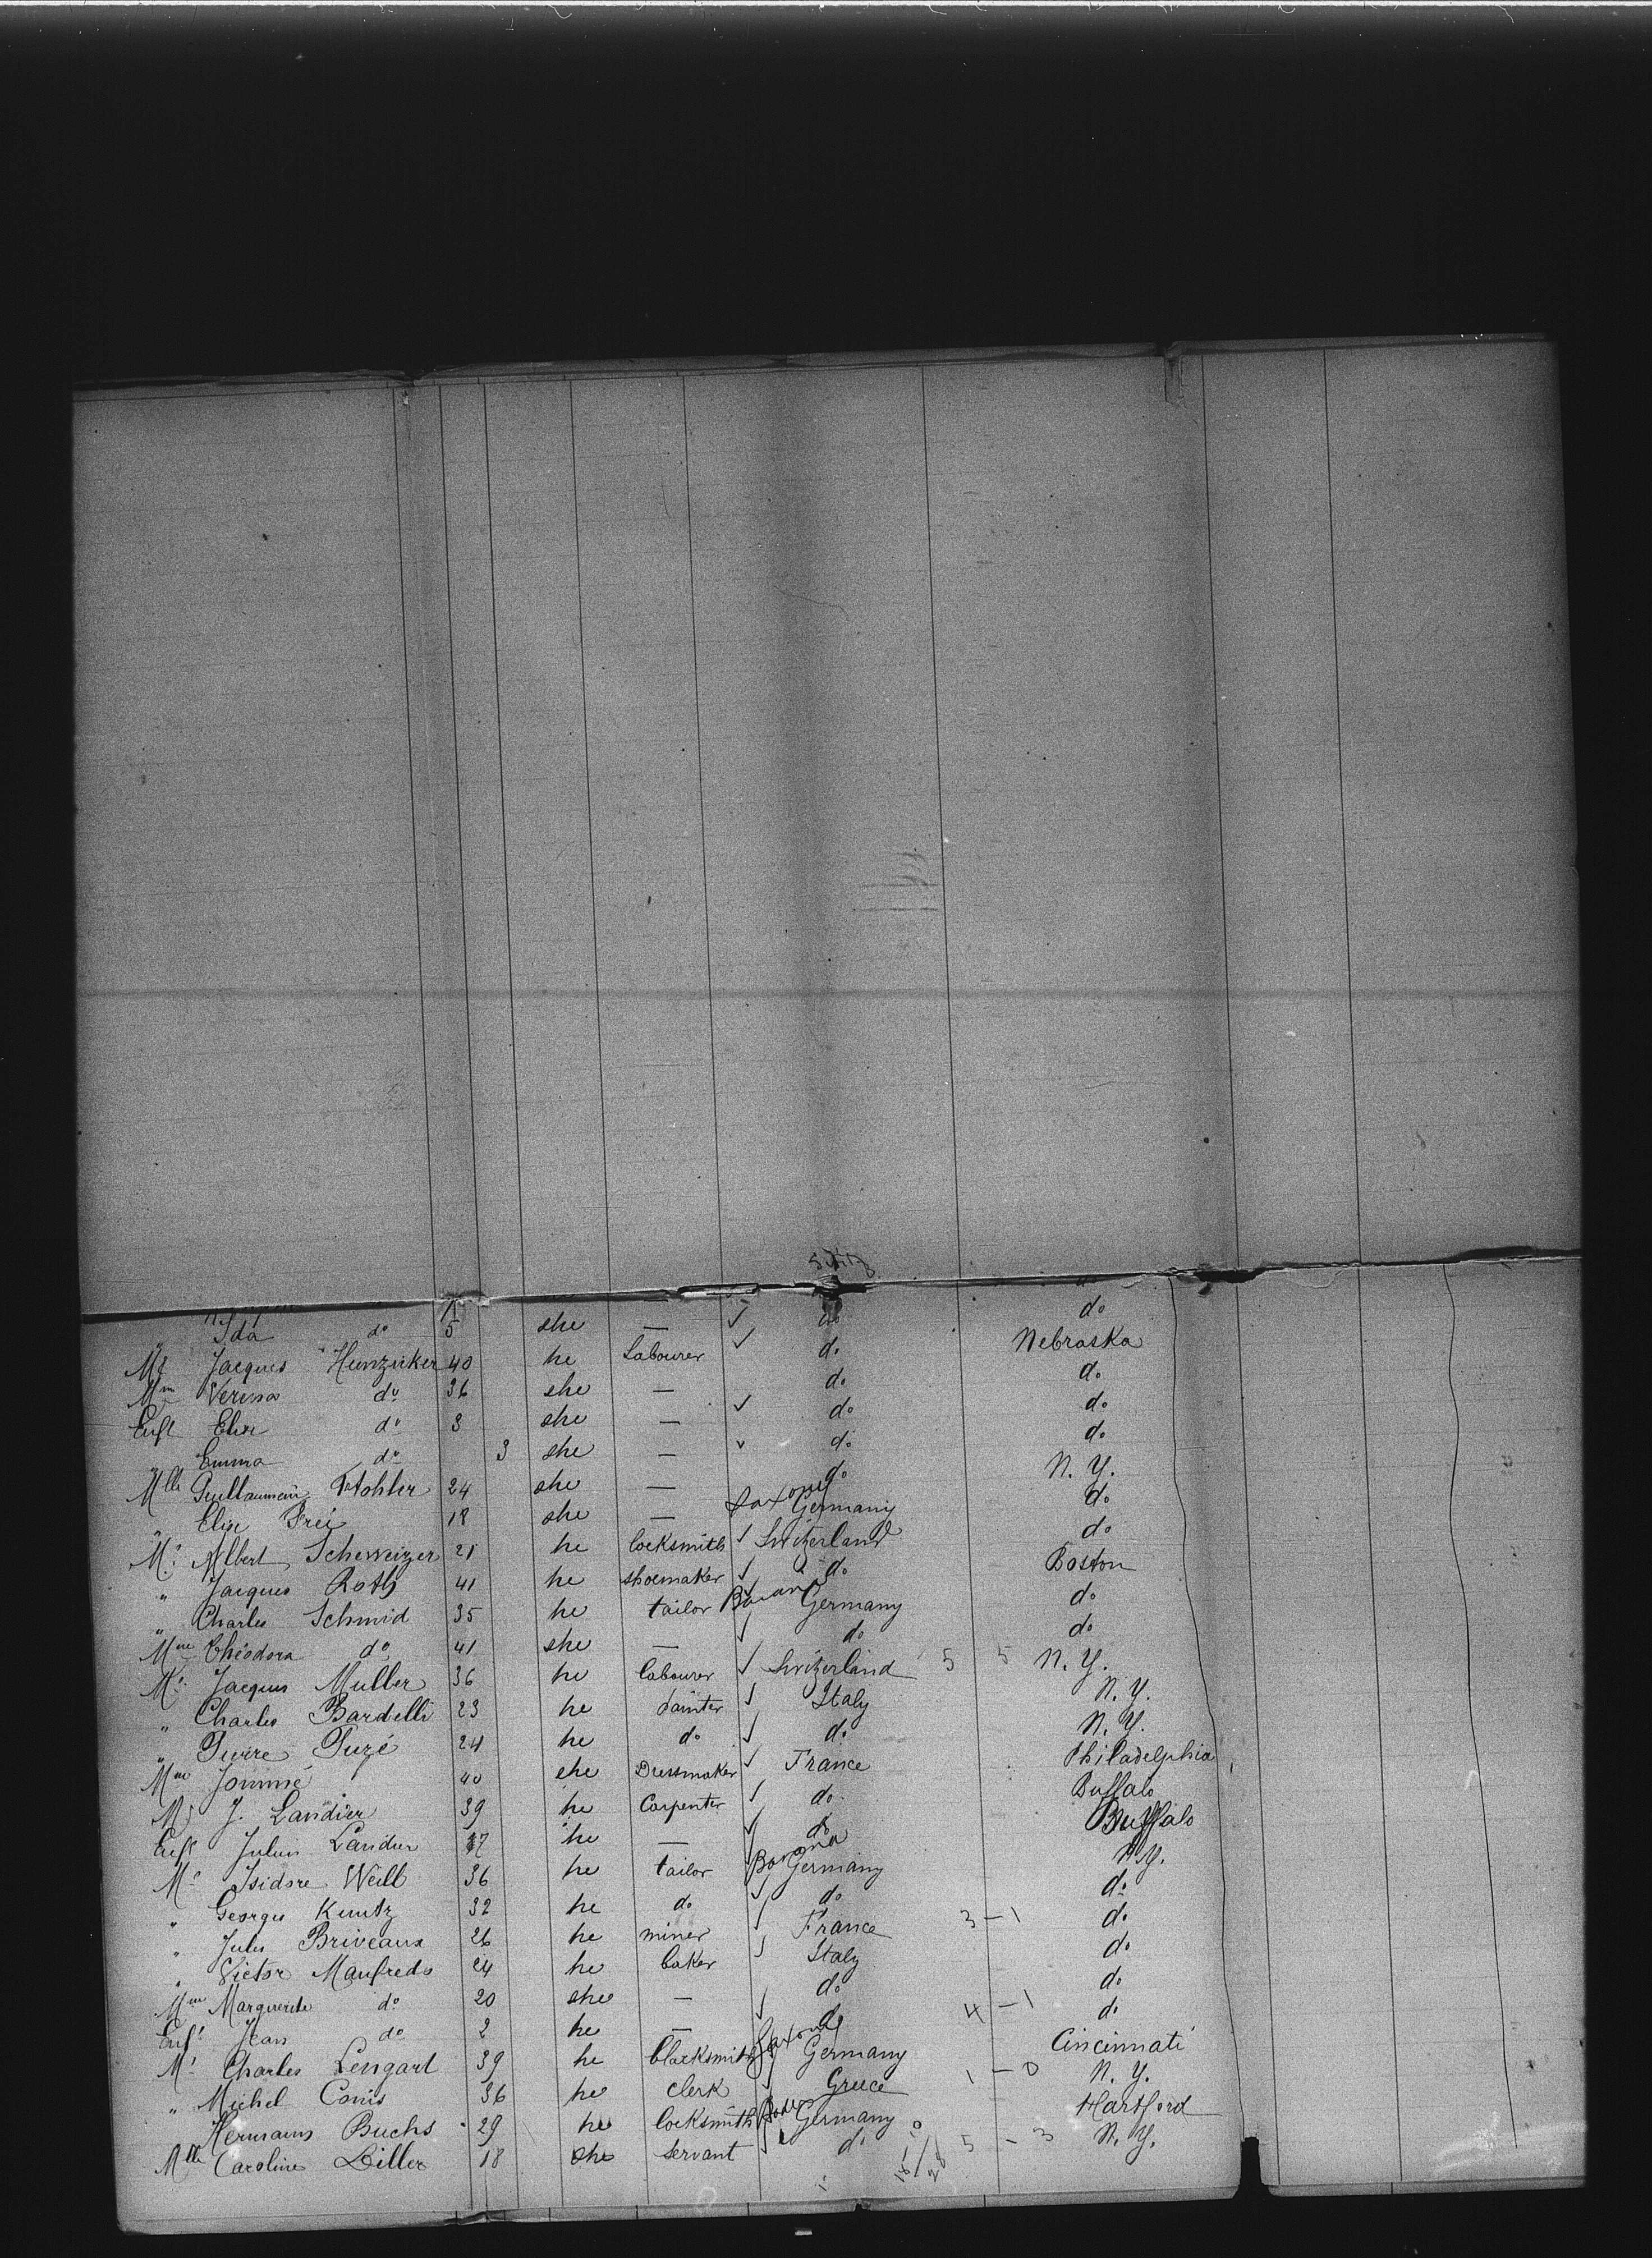 " Ida do 5 she — ✓ do do
Mr Jacques Hunziker 40 he Labourer ✓ do Nebraska
Mme Verena do 36 she — do do
Enft Elise do 8 she — ✓ do do
" Emma do 3 she — ✓ do do
Mlle Stohler 24 she — do N. Y.
" Elise Frei 18 she — Saxony Germany do
Mr Albert Scheweizer 21 he locksmith ✓ Switzerland do
" Jacques Roth 41 he shoemaker ✓ do Boston
" Charles Schmid 35 he tailor Bavaria Germany do
Mme Théodora do 41 she — ✓ do do
Mr Jacques Muller 36 he labourer ✓ Switzerland 5 5 N. Y.
" Charles Bardelli 23 he painter ✓ Italy N. Y.
" Pierre Puzé 24 he do ✓ do N. Y.
Mme Jommé 40 she Dressmaker ✓ France Philadelphia
Mr J. Landier 39 he Carpenter ✓ do Buffalo
Enft Julien Landier 17 he — ✓ do Buffalo
Mr Isidore Weill 36 he tailor Germany N. Y.
" Georges Kuntz 32 he do ✓ do do
" Jules Briveaux 26 he miner ✓ France 3 — 1 do
" Victor Manfredo 24 he baker ✓ Italy do
Mme Marguerite do 20 she — do do
Enft Jean do 2 he — ✓ do 4 — 1 do
Mr Charles Lengart 39 he blacksmith Saxony Germany Cincinnati
" Michel Conis 36 he clerk ✓ Greece 1 — 0 N. Y.
Hermann Buchs 29 he locksmith Germany Hartford
Mlle Caroline Biller 18 she servant ✓ do 5 — 3 N. Y.
18 — 10
28